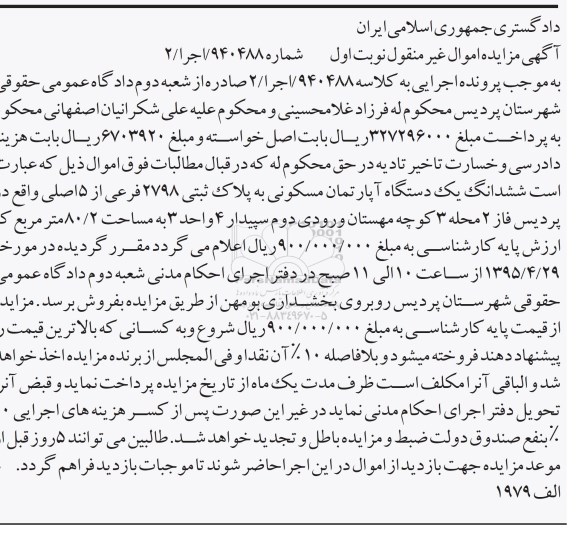 دادگستری جمهوری اسلامی ایران
آگهی مزایده اموال غیر منقول نوبت اول شماره ۹۴۰۴۸۸/اجرا/۲
به موجب پرونده اجرایی به کلاسه ۹۴۰۴۸۸/اجرا/۲ صادره از شعبه دوم دادگاه عمومی حقوقی
شهرستان پردیس محکوم له فرزاد غلامحسینی و محکوم علیه علی شکرانیان اصفهانی محکو
به پرداخت مبلغ ۳۲۷۲۹۶۰۰۰ ریال بابت اصل خواسته و مبلغ ۶۷۰۳۹۲۰ ریال بابت هزینه
دادرسی و خسارت تاخیر تادیه در حق محکوم له که در قبال مطالبات فوق اموال ذیل که عبارت
است ششدانگ یک دستگاه آپارتمان مسکونی به پلاک ثبتی ۲۷۹۸ فرعی از ۵ اصلی واقع در
پردیس فاز ۲ محله ۳ کوچه مهستان ورودی دوم سپیدار ۴ واحد ۳ به مساحت ۸۰/۲ متر مربع ک
ارزش پایه کارشناسی به مبلغ ۹۰۰/۰۰۰/۰۰۰ ریال اعلام می گردد مقرر گردیده در مورخ
۱۳۹۵/۴/۲۹ از ساعت ۱۰ الی ۱۱ صبح در دفتر اجرای احکام مدنی شعبه دوم دادگاه عمومی
حقوقی شهرستان پردیس روبروی بخشداری بومهن از طریق مزایده بفروش برسد. مزایده
از قیمت پایه کارشناسی به مبلغ ۹۰۰/۰۰۰/۰۰۰ ریال شروع و به کسانی که بالاترین قیمت ر
پیشنهاد دهند فروخته میشود و بلافاصله ۱۰٪ آن نقدا و فی المجلس از برنده مزایده اخذ خواهد
شد و الباقی آنرا مکلف است ظرف مدت یک ماه از تاریخ مزایده پرداخت نماید و قبض آنر
تحویل دفتر اجرای احکام مدنی نماید در غیر این صورت پس از کسر هزینه های اجرایی ۰
٪ بنفع صندوق دولت ضبط و مزایده باطل و تجدید خواهد شد. طالبین می توانند ۵ روز قبل از
موعد مزایده جهت بازدید از اموال در این اجرا حاضر شوند تا موجبات بازدید فراهم گردد.
الف ۱۹۷۹
۰۲۱-۸۸۳۴۹۶۷۰-۵